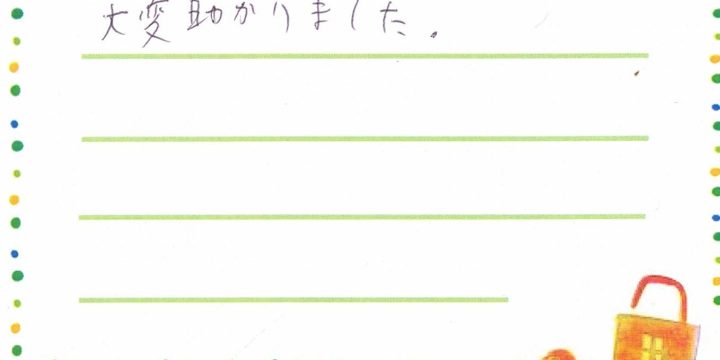 大変助かりました。